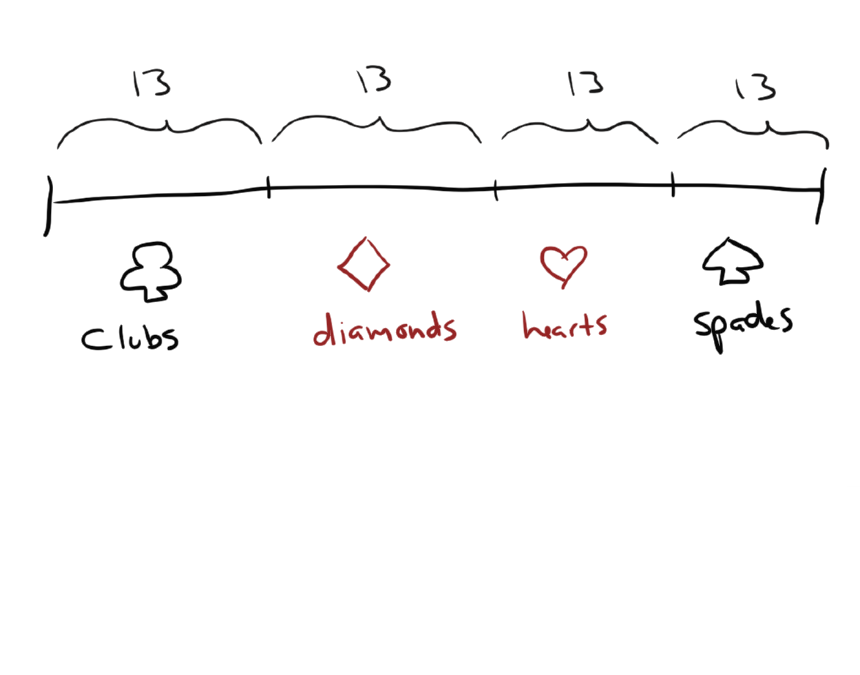 13 13 13 13
Clubs diamonds hearts spades